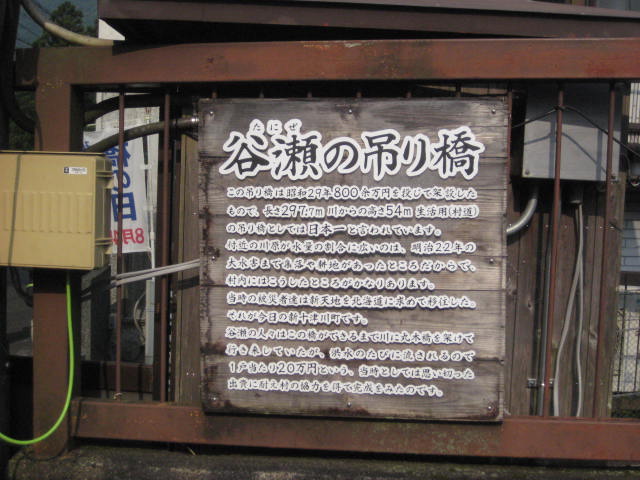 たにぜ
谷瀬の吊り橋
この吊り橋は昭和29年800余万円を投じて架設した
もので、長さ297.7m 川からの高さ54m 生活用(村道)
の吊り橋としては日本一と言われています。
付近の川原が水量の割合に広いのは、明治22年の
大水害まで集落や耕地があったところだからで、
村内にはこうしたところがかなりあります。
当時の被災者達は新天地を北海道に求めて移住した。
それが今日の新十津川町です。
谷瀬の人々はこの橋ができるまで川に丸木橋を架けて
行き来していたが、洪水のたびに流されるので
1戸当たり20万円という、当時としては思い切った
出費に耐え村の協力を得て完成をみたのです。
の日
8月4